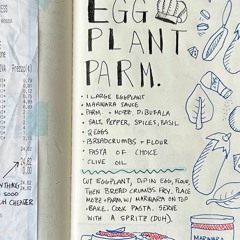 EGG
PLANT
PARM.
• 1 LARGE EGGPLANT
• MARINARA SAUCE
• PARM. + MOZZ. DI BUFALA
• SALT, PEPPER, SPICES, BASIL
• 2 EGGS
• BREADCRUMBS + FLOUR
• PASTA OF CHOICE
• OLIVE OIL
CUT EGGPLANT, DIP IN EGG, FLOUR
THEN BREAD CRUMBS. FRY, PLACE
MOZZ + PARM W/ MARINARA ON TOP
- BAKE. COOK PASTA. SERVE
WITH A SPRITZ (DUH).
MARINARA
Prezzo(€)
24,62
0,00
24,62
SOOO
CHEAPER